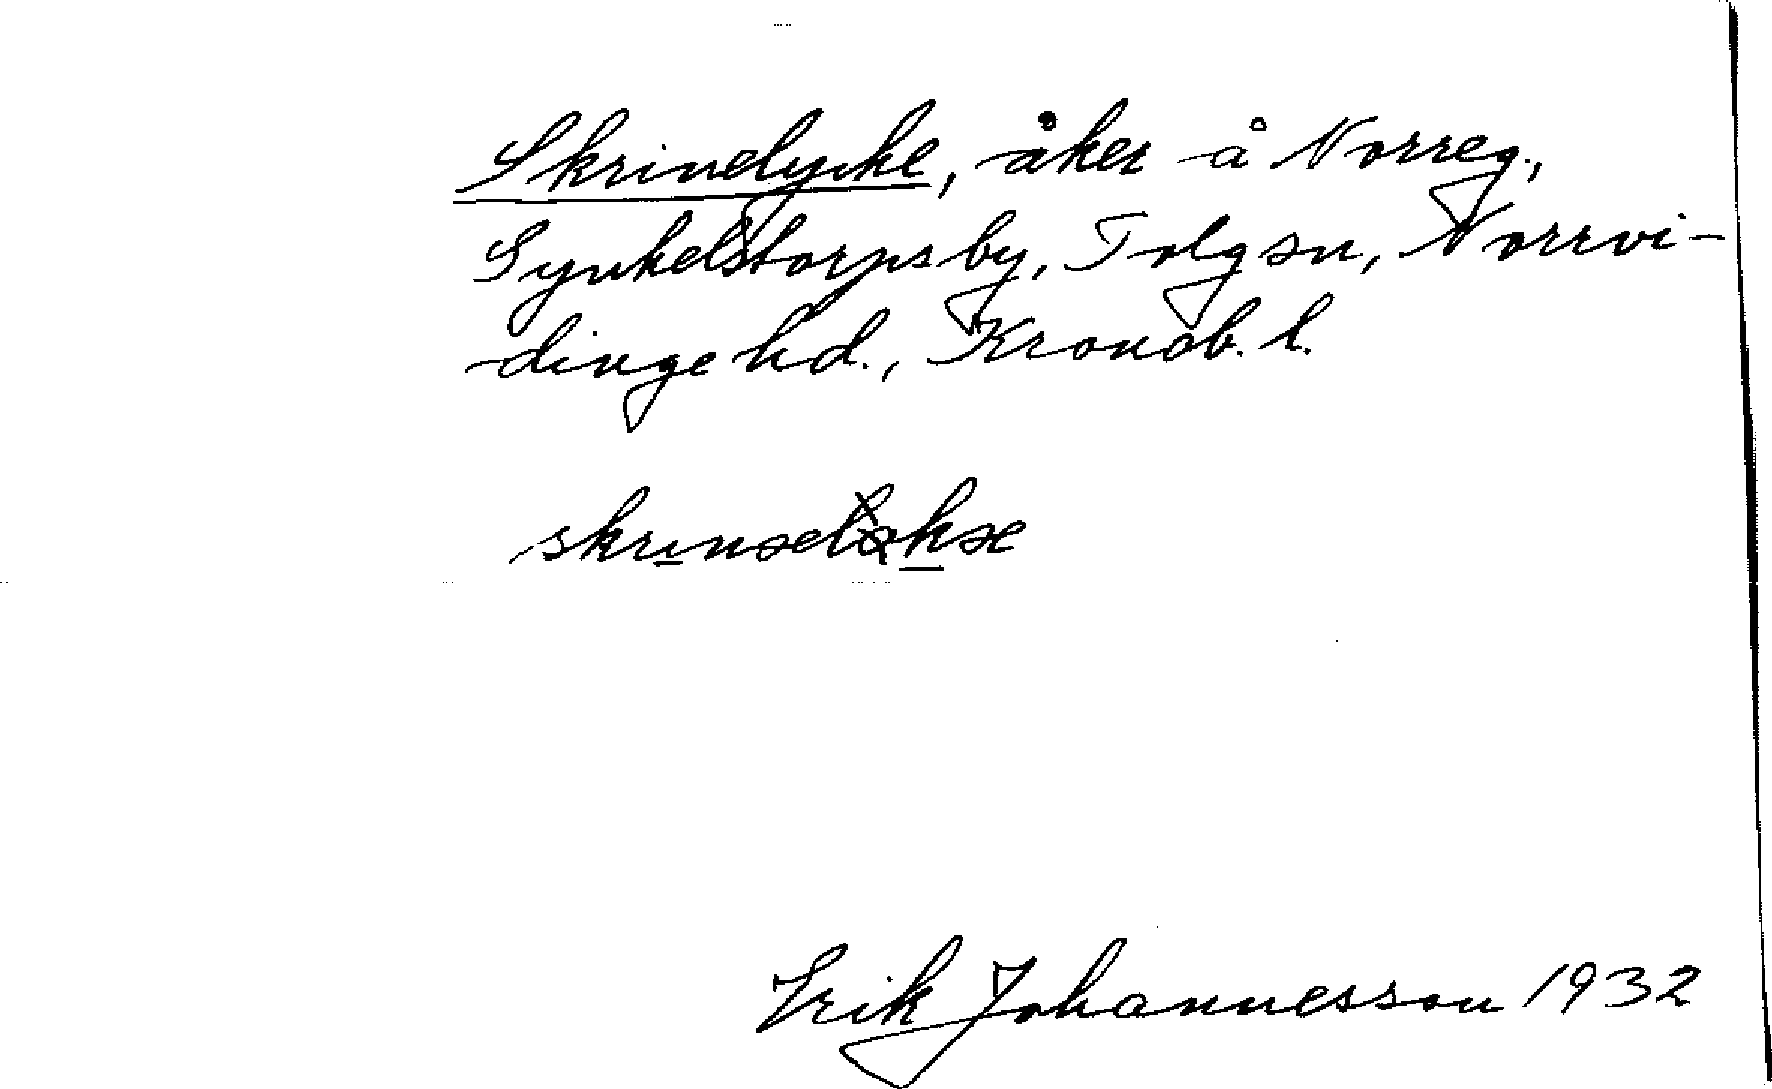 Skrinelycke, åker å Norreg.,
Synkelstorps by, Tolg sn, Norrvi-
dinge hd., Kronob. l.
Erik Johannesson 1932